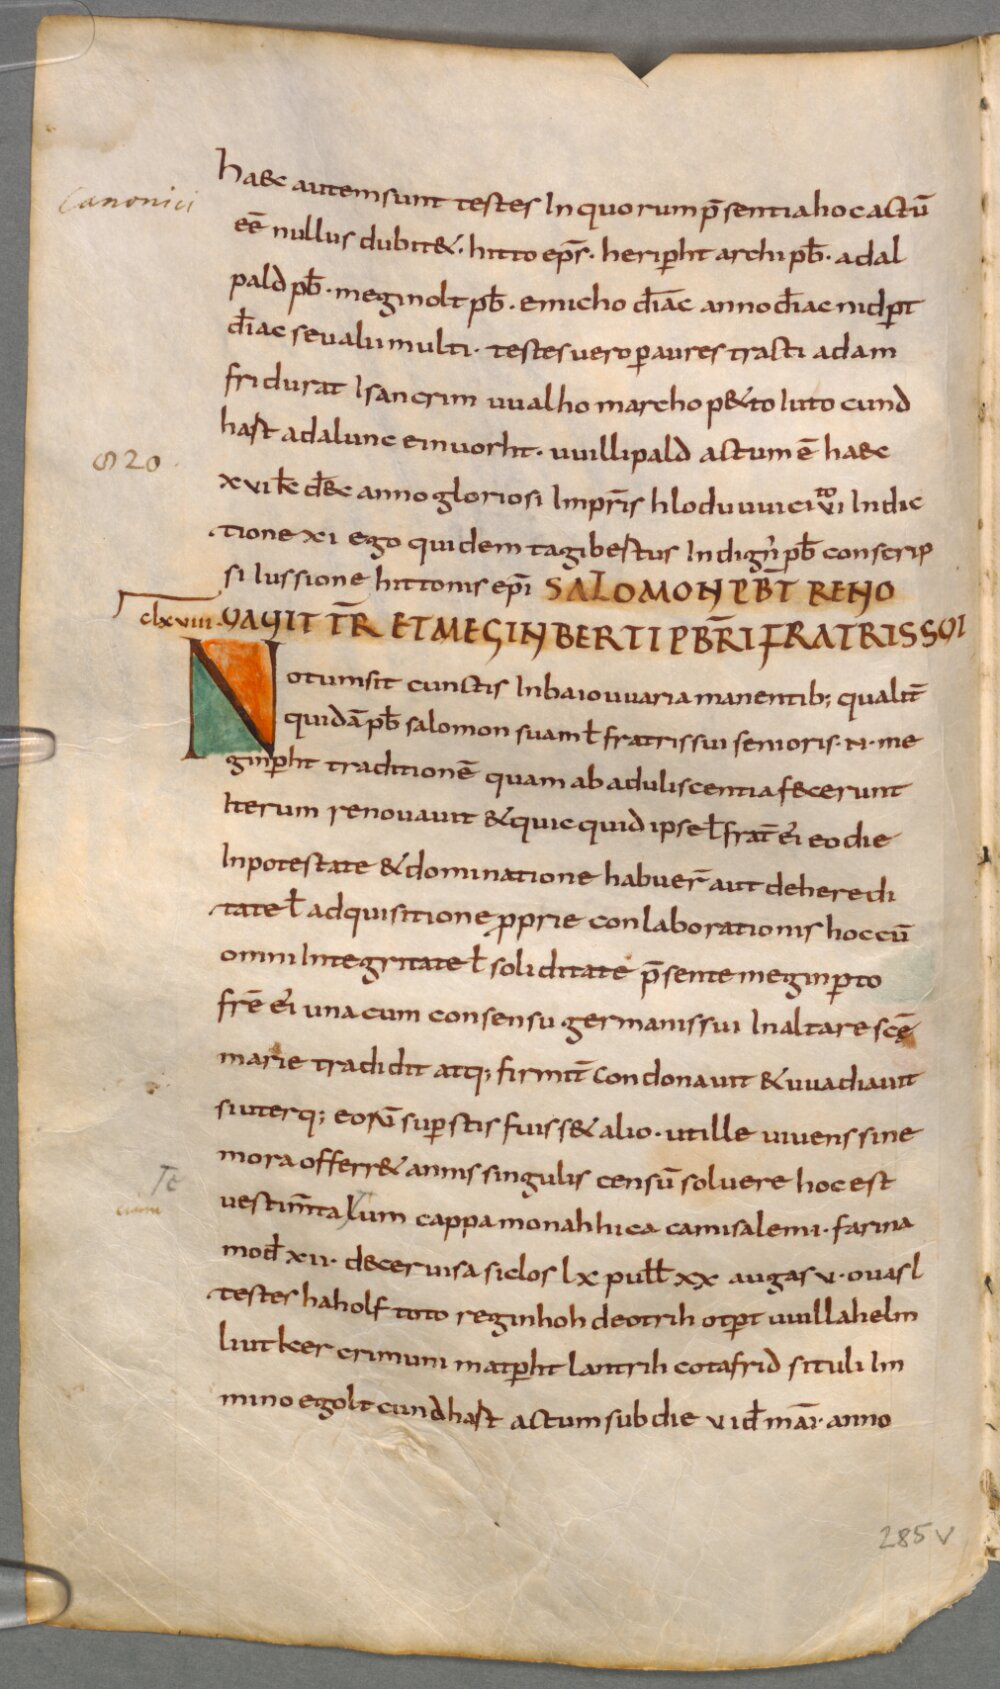 Canonici
haec autem sunt testes In quorum p̄sentia hoc actū
eē nullus dubit&· hitto ep̄s· heripht archi pb̄· adal
pald pb̄· meginolt pb̄· emicho diāc anno diac nidp̱t
diac seu alii multi· testes uero p aures tracti adam
fridurat Isancrim uualho marcho p&to luto cund
haft adalunc einuorht· uuillipald actum ē haec
820
xvi kł dec anno gloriosi Impr̄is hloduuuici vi to Indic
tione xi ego quidem tagibertus Indign̄ pb̄ conscrip
si Iussione hittonis ep̄i SALOMON PBT̄ RENO
clxviii· VAVIT TR̄ ET MEGINBERTI PBR̄I FRATRIS SVI
Notum sit cunctis In baiouuaria manentib; qualit̄
quidā pb̄ salomon suam ł fratris sui senioris· N· me
ginpht traditionē quam ab aduliscentia fecerunt
Iterum renouauit & quicquid ipse ł frat̄ ei eo die
In potestate & dominatione habuer̄ aut de heredi
tate ł adquisitione pprie conlaborationis hoc cū
omni Integritate ł soliditate p̄sente meginpto
fr̄e ei una cum consensu germanis sui In altare scē
marie tradidit atq; firmit̄ condonauit & uuadiauit
si uterq; eorū supstis fuiss& alio· ut ille uiuens sine
mora offerr& annis singulis censū soluere hoc est
Te
uestim̄ta Ium cappa monahhica camisale mi· farina
mod̄ xii· de ceruisa siclos lx pułł xx augas v· ouas l
testes haholf toto reginhoh deotrih otpt uuillahelm
liutker crimuni matpht lantrih cotafrid situli Im
mino egolt cundhaft actum sub die vi id̄ mai· anno
285v